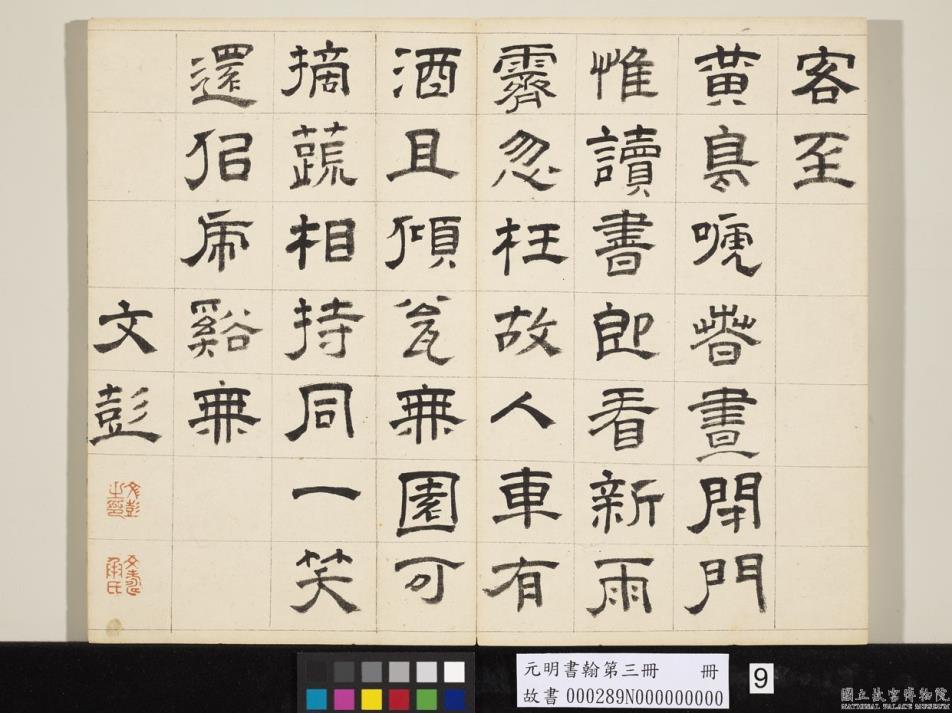 客至
黃鳥嗁萅晝閉門
惟讀書即看新雨
霽忽枉故人車有
酒且傾瓮無園可
摘蔬相持同一笑
還佀虎谿無
文彭
文彭之印
文壽承氏
元明書翰第三冊 冊
故書 000289N000000000
9
國立故宮博物院
NATIONAL PALACE MUSEUM